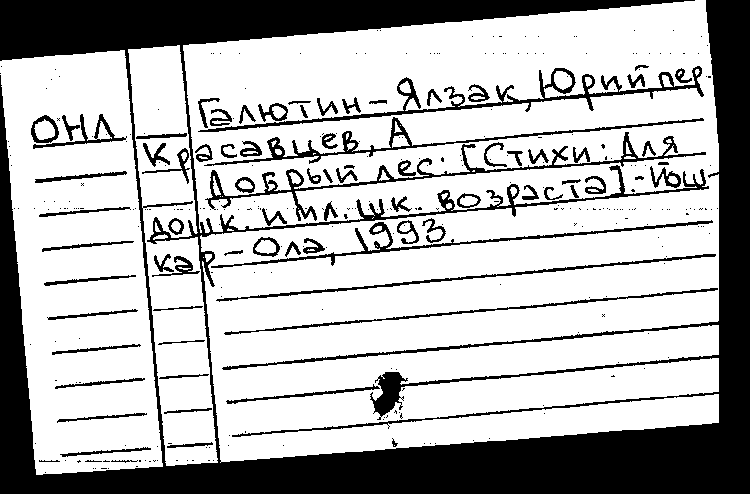 ОНЛ
Галютин-Ялзак, Юрий, пер
Красавцев, А
Добрый лес: [Стихи: Для
дошк. и мл. шк. возраста].-Йош-
кар-Ола, 1993.